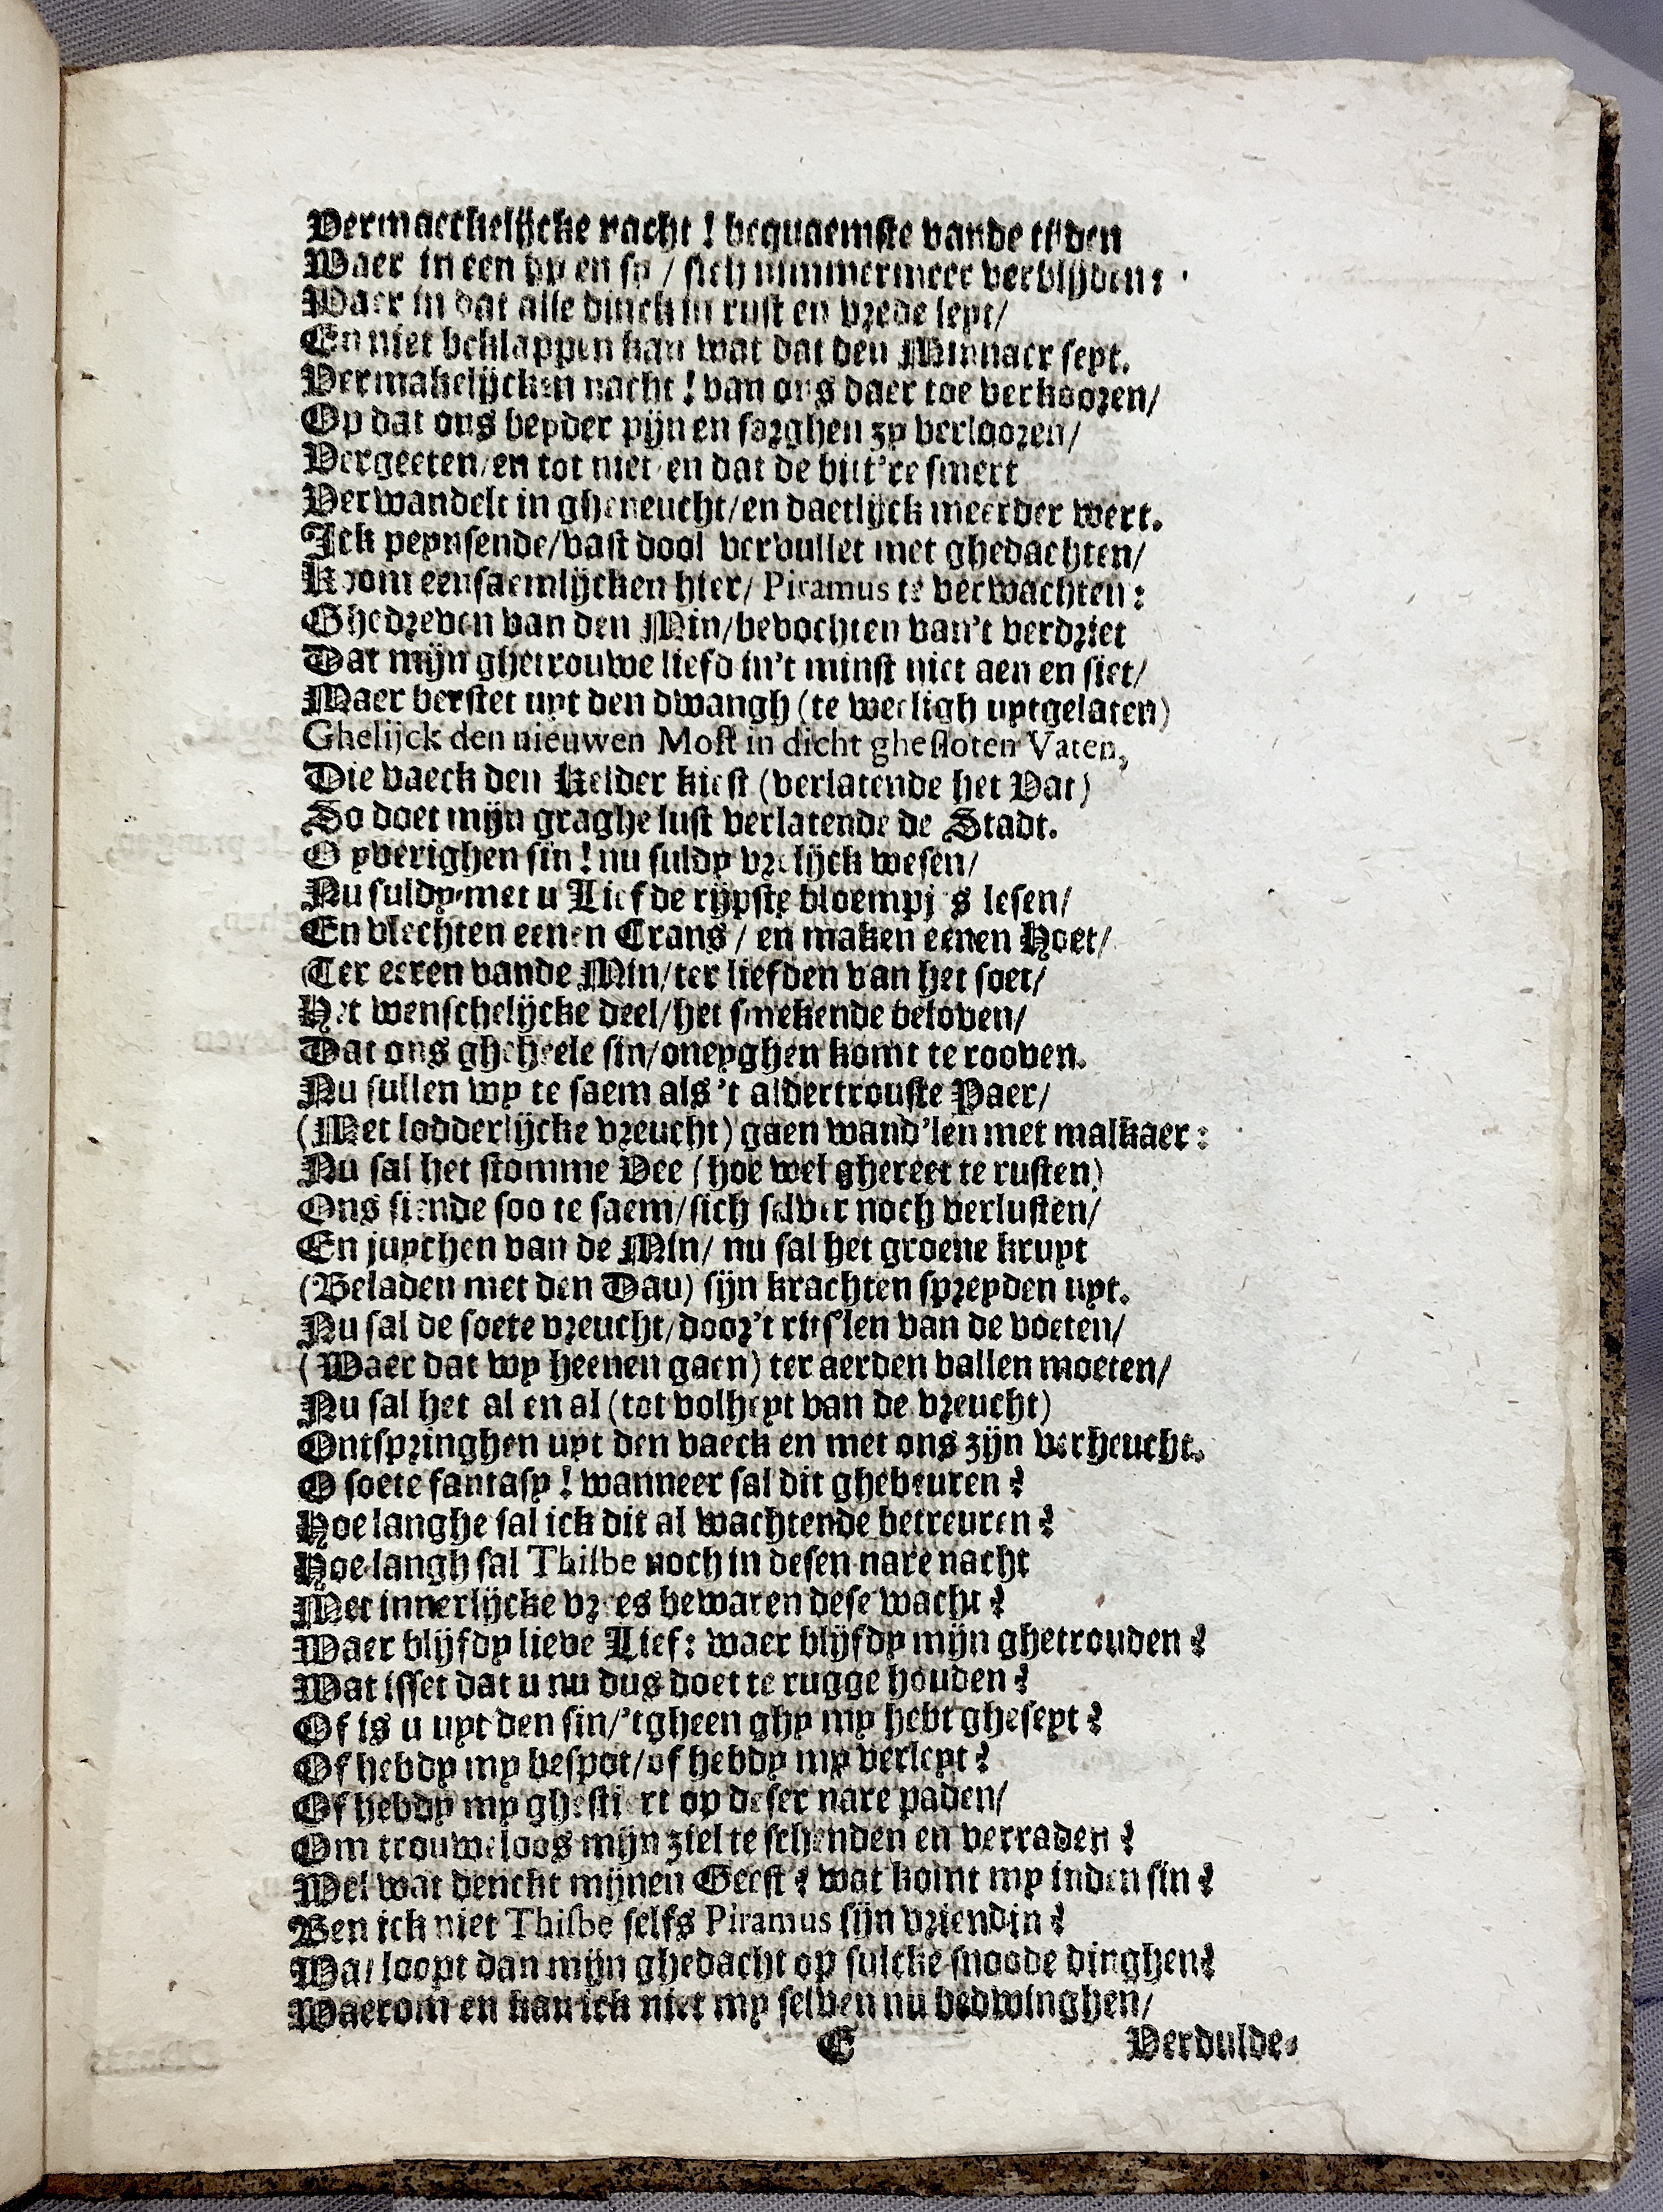 Vermaeckelijcke nacht! bequaemste vande tijden
Waer in een hy en sy / sich nimmermeer verblijden:
Waer in dat alle dinck in rust en vrede leyt/
En niet beklappen kan wat dat den Minnaer seyt.
Vermakelijcken nacht! van ons daer toe verkooren/
Op dat ons beyder pijn en sorghen zy verlooren/
Vergeeten/en tot niet/en dat de bitt're smert
Verwandelt in gheneucht/en daetlijck meerder wert.
Ick peynsende/vast dool vervullet met ghedachten/
Koom eensaemlijcken hier/ Piramus te verwachten:
Ghedreven van den Min/bevochten van't verdriet
Dat mijn ghetrouwe liefd in't minst niet aen en siet/
Maer berstet uyt den dwangh (te weeligh uytgelaten)
Ghelijck den nieuwen Most in dicht ghesloten Vaten,
Die vaeck den Kelder kiest (verlatende het Vat)
So doet mijn graghe lust verlatende de Stadt.
O yverighen sin! nu suldy vrolijck wesen/
Nu suldy met u Lief de rijpste bloempjes lesen/
En vlechten eenen Crans / en maken eenen Hoet/
(Ter eeren vande Min/ter liefden van het soet/
Het wenschelijcke deel/het smekende beloven/
Dat ons gheheele sin/oneyghen komt te rooven.
Nu sullen wy te saem als 't aldertrouste Paer/
(Met lodderlijcke vreucht) gaen wand'len met malkaer:
Nu sal het stomme Vee (hoe wel ghereet te rusten)
Ons siende soo te saem/sich selver noch verlusten/
En juychen van de Min/ nu sal het groene kruyt
(Beladen met den Dau) sijn krachten spreyden uyt.
Nu sal de soete vreucht/door't rits'len van de voeten/
(Waer dat wy heenen gaen) ter aerden vallen moeten/
Nu sal het al en al (tot volheyt van de vreucht)
Ontspringhen uyt den vaeck en met ons zijn verheucht.
O soete fantasy! wanneer sal dit ghebeuren?
Hoe langhe sal ick dit al wachtende betreuren?
Hoe langh sal Thisbe noch in desen nare nacht
Met innerlijcke vrees bewaren dese wacht?
Waer blijfdy lieve Lief: waer blijfdy mijn ghetrouden?
Wat isset dat u nu dus doet te rugge houden?
Of is u uyt den sin/'tgheen ghy my hebt gheseyt?
Of hebdy my bespot/of hebdy my verleyt?
Of hebdy my ghestiert op deser nare paden/
Om trouweloos mijn ziel te schenden en verraden?
Wel wat denckt mijnen Geest? wat komt my inden sin?
Ben ick niet Thisbe selfs Piramus sijn vriendin?
Wat loopt dan mijn ghedacht op sulcke snoode dinghen?
Waerom en kan ick niet my selven nu bedwinghen/
E Verdulde-